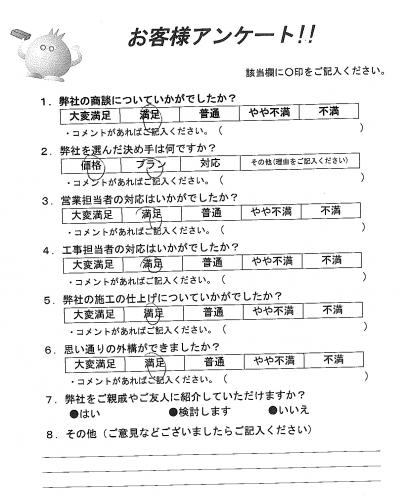 お客様アンケート!!
該当欄に〇印をご記入ください。
1．弊社の商談についていかがでしたか？
大変満足 満足 普通 やや不満 不満
・コメントがあればご記入ください。（ ）
2．弊社を選んだ決め手は何ですか？
価格 プラン 対応 その他(理由をご記入ください)
・コメントがあればご記入ください。（ ）
3．営業担当者の対応はいかがでしたか？
大変満足 満足 普通 やや不満 不満
・コメントがあればご記入ください。（ ）
4．工事担当者の対応はいかがでしたか？
大変満足 満足 普通 やや不満 不満
・コメントがあればご記入ください。（ ）
5．弊社の施工の仕上げについていかがでしたか？
大変満足 満足 普通 やや不満 不満
・コメントがあればご記入ください。（ ）
6．思い通りの外構ができましたか？
大変満足 満足 普通 やや不満 不満
・コメントがあればご記入ください。（ ）
7．弊社をご親戚やご友人に紹介していただけますか？
●はい ●検討します ●いいえ
8．その他（ご意見などございましたらご記入ください）